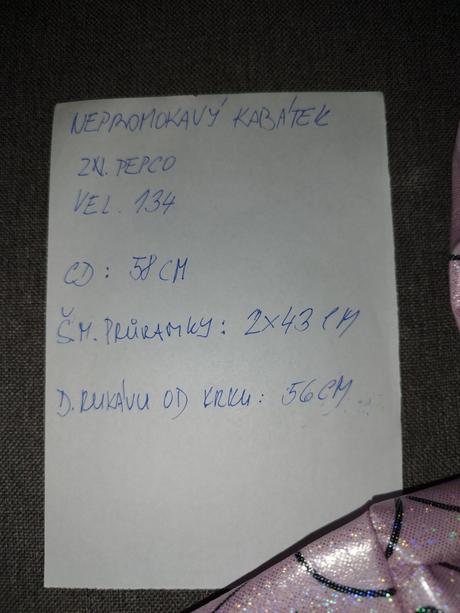 NEPROMOKAVÝ KABÁTEK
ZN. PEPCO
VEL. 134
CD: 58 CM
ŠM. PRŮRAMKY: 2x43 CM
D. RUKÁVU OD KRKU: 56 CM